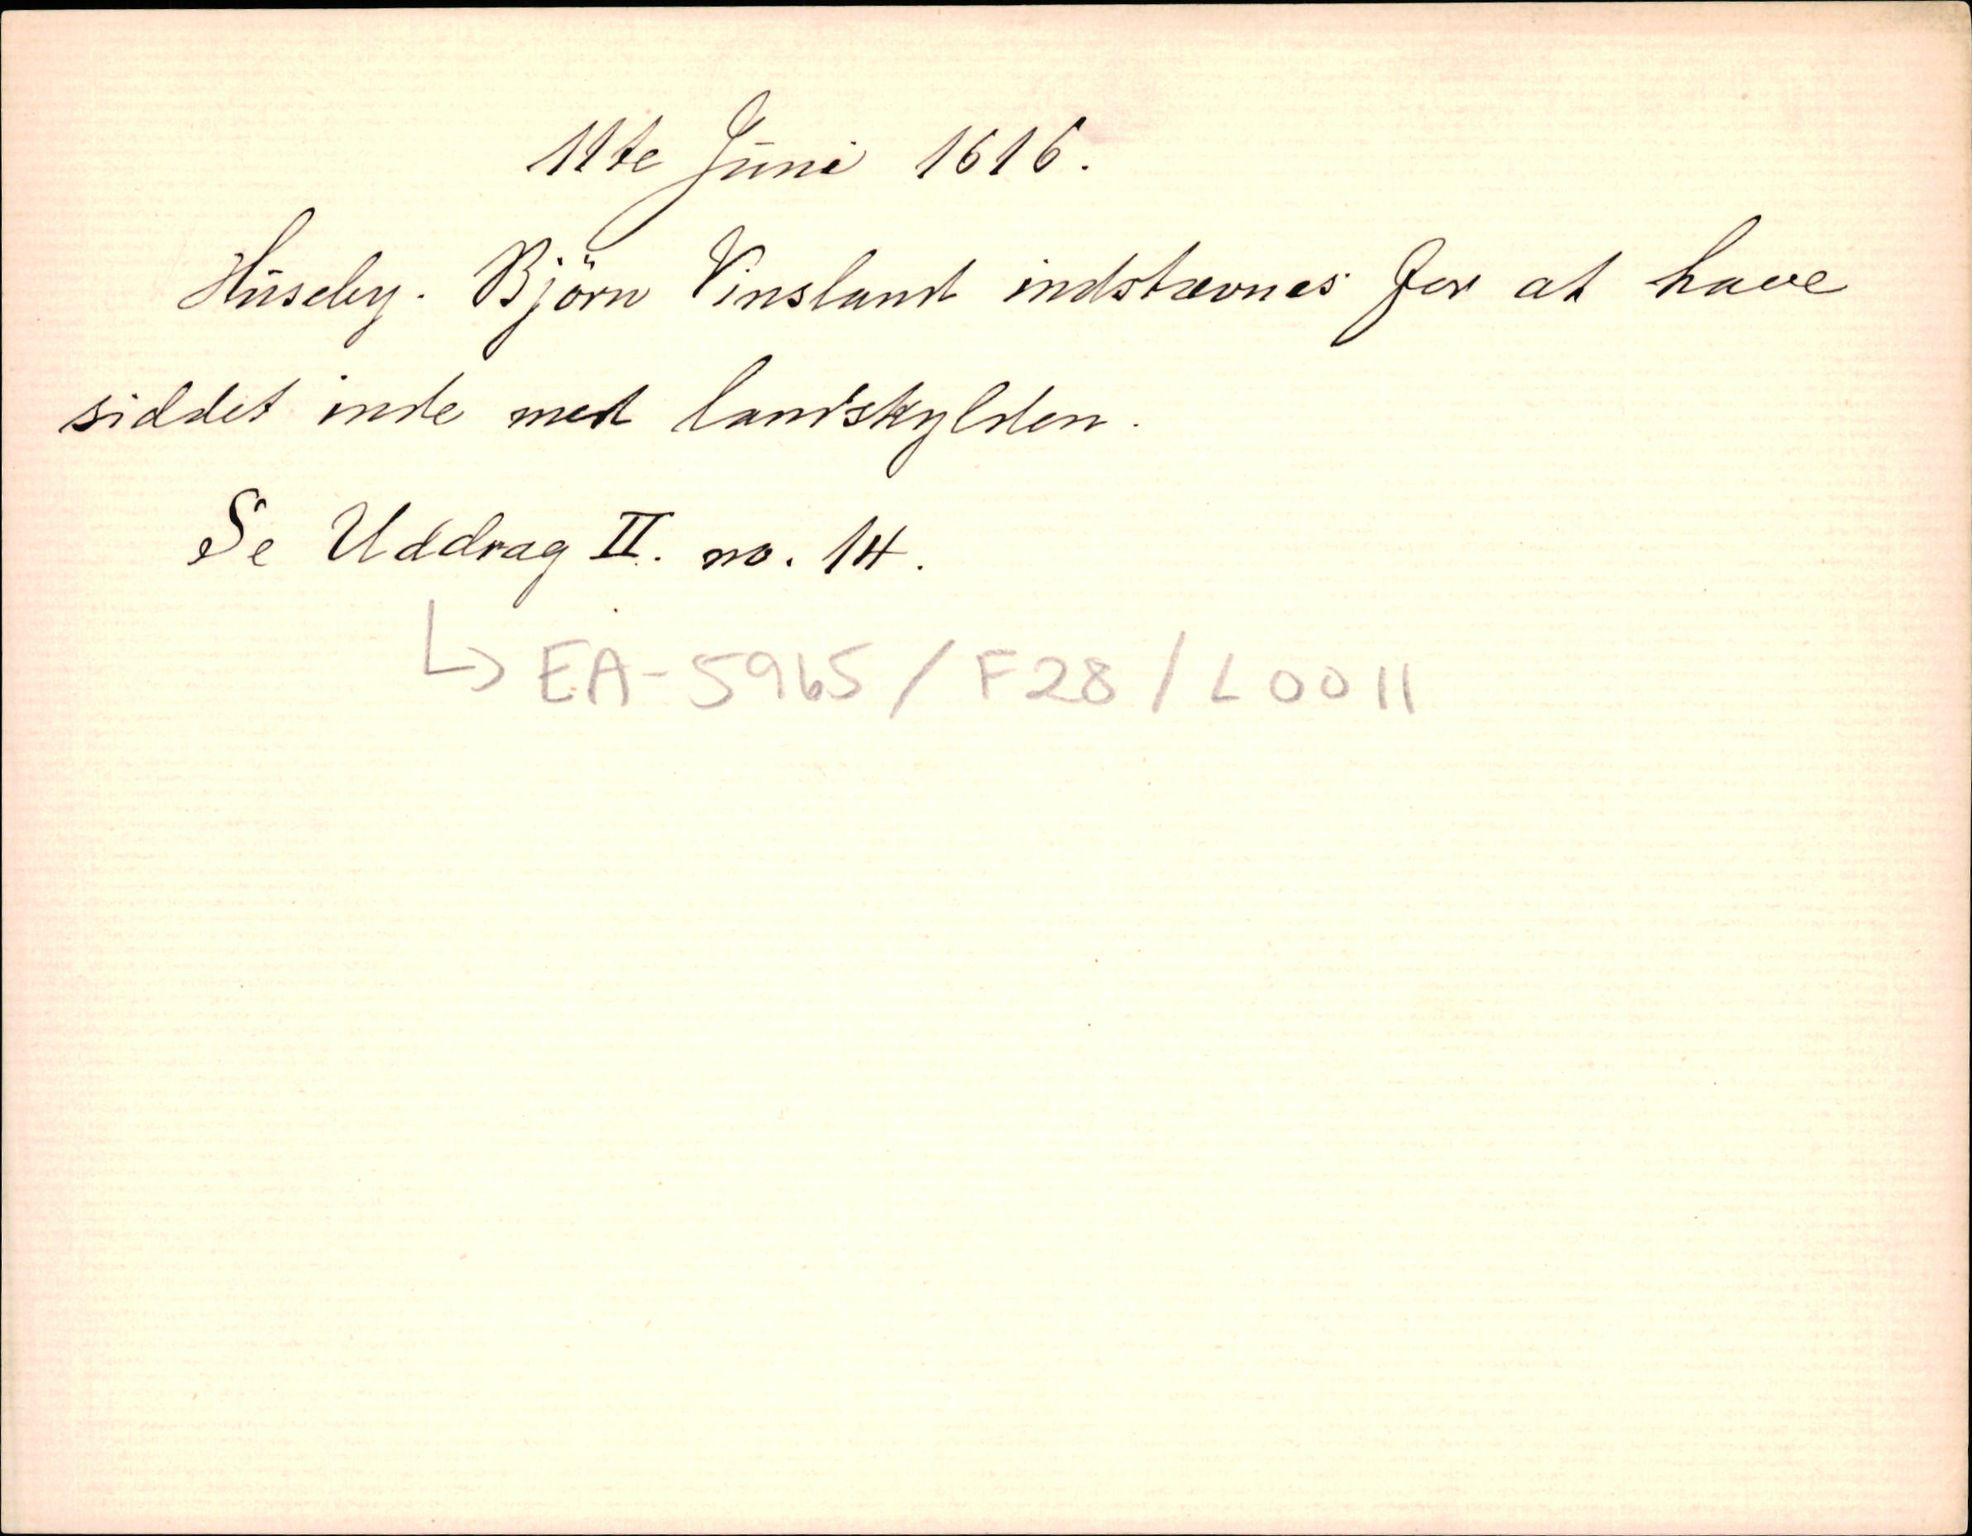 11te Juni 1616.
Huseby. Björn Vinsland indstævnes for at have
siddet inde med landskylden.
Se Uddrag II. no. 14.
↳ EA-5965 / F28 / L0011